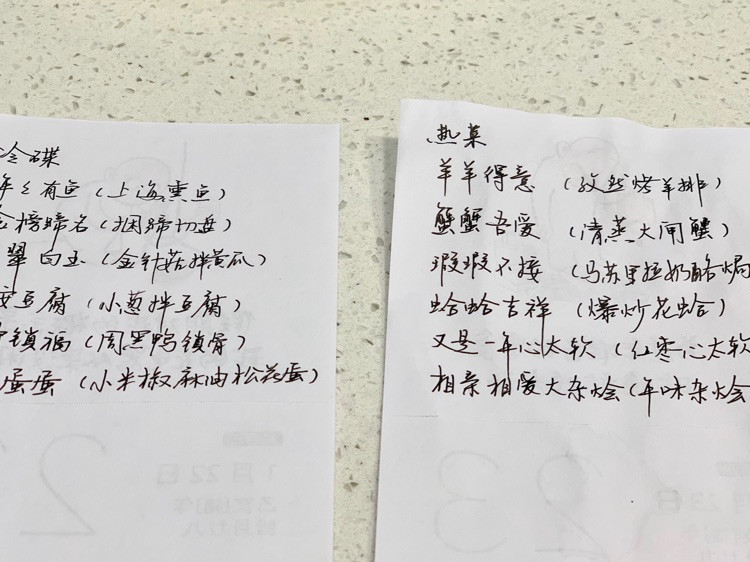 冷碟
年年有鱼（上海熏鱼）
金榜蹄名（捆蹄切盘）
翠白玉（金针菇拌黄瓜）
豆腐（小葱拌豆腐）
锁福（周黑鸭锁骨）
蛋蛋（小米椒麻油松花蛋）
热菜
羊羊得意（孜然烤羊排）
蟹蟹吾爱（清蒸大闸蟹）
虾虾不接（马苏里拉奶酪焗
蛤蛤吉祥（爆炒花蛤）
又是一年心太软（红枣心太软
相亲相爱大杂烩（年味杂烩
1月22日